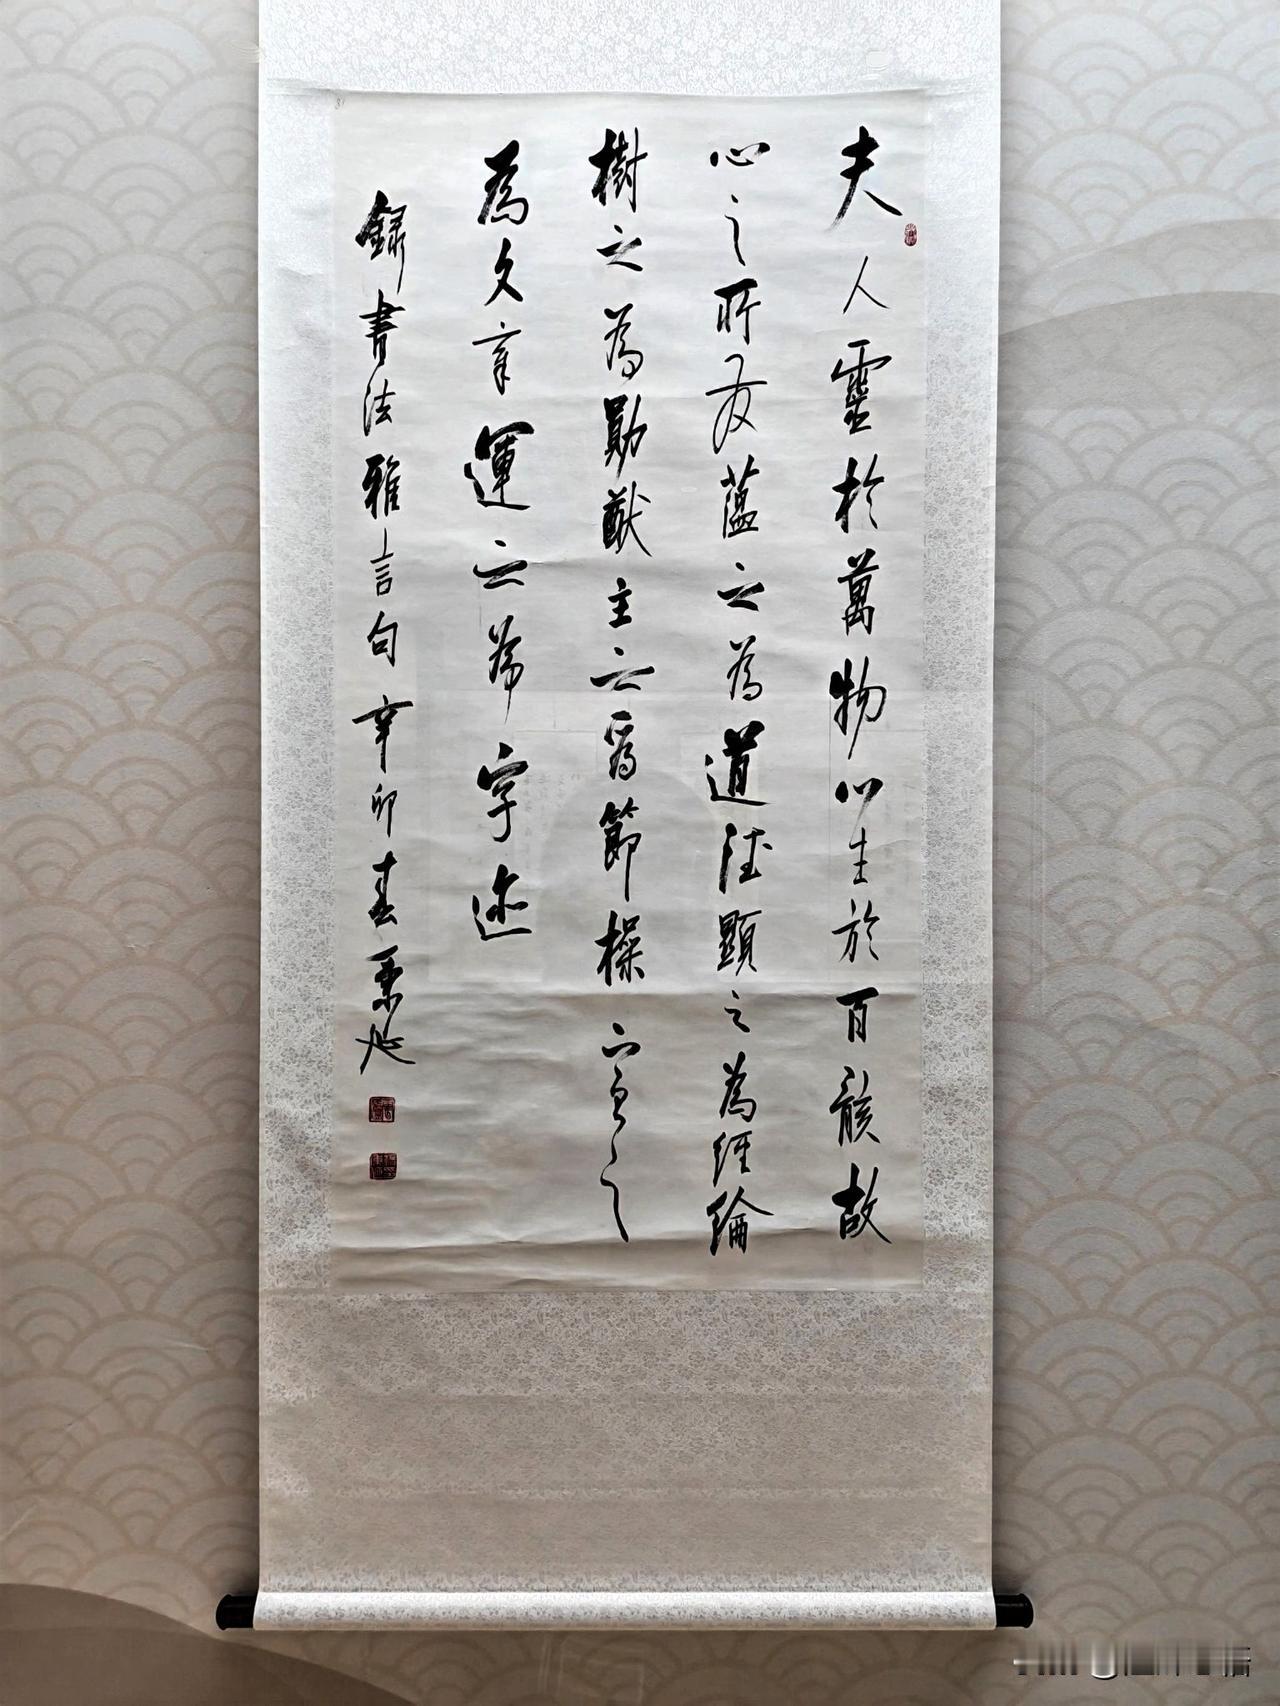 夫人靈於萬物心主於百骸故
心之所發蘊之為道德顯之為經綸
樹之為勛猷立之為節操宣之
為文章運之為字迹
錄書法雅言句辛卯春